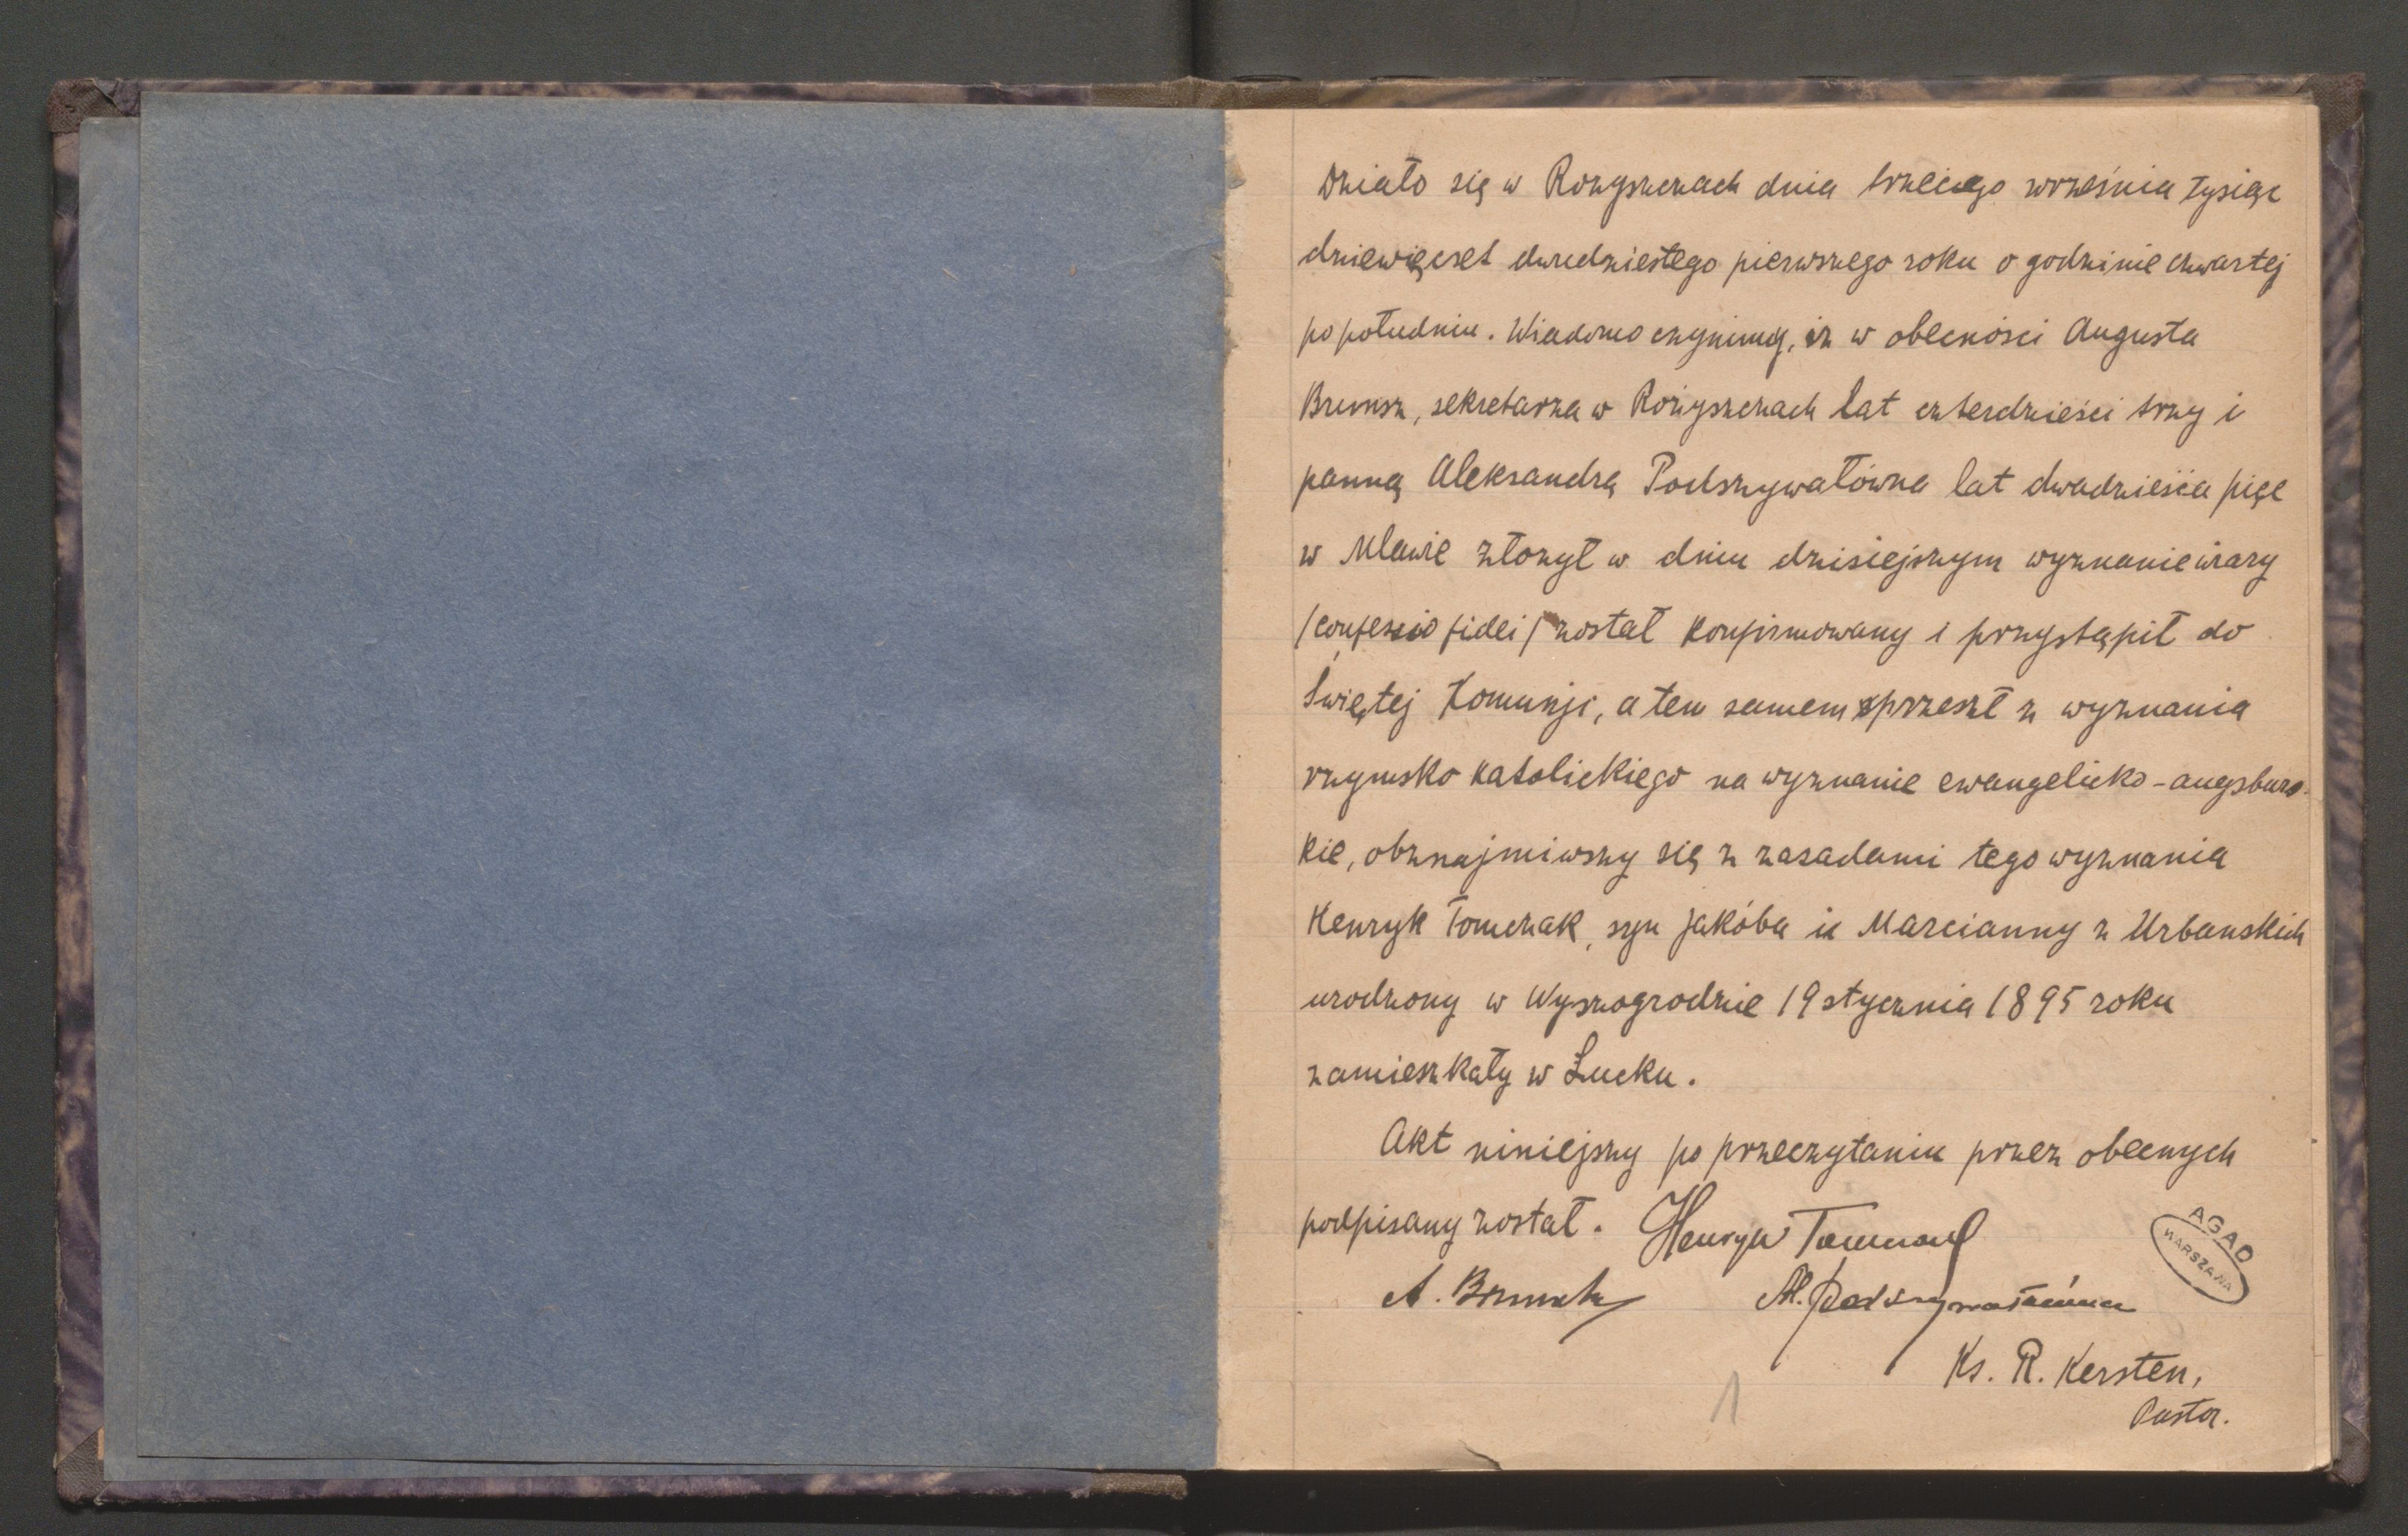 Działo się w Rożyszczach dnia trzeciego września tysiąc
dziewięćset dwudziestego pierwszego roku o godzinie czwartej
po południu. Wiadomo czynimy, iż w obecności Augusta
Brumsz, sekretarza w Rożyszczach lat czterdzieści trzy i
panną Aleksandrą Podszywałówna lat dwadzieścia pięć
w Mławie złożył w dniu dzisiejszym wyznanie wiary
/confessio fidei/ został konfirmowany i przystąpił do
Świętej Komunji, a tem samem przeszł z wyznania
rzymsko katolickiego na wyznanie ewangelicko-augsburs-
kie, obznajmiwszy się z zasadami tego wyznania
Henryk Tomczak, syn Jakóba i Marcianny z Urbanskich
urodzony w Wyszogrodzie 19 stycznia 1895 roku
zamieszkały w Łucku.
Akt niniejszy po przeczytaniu przez obecnych
podpisany został. Henryk Tomczak
A. Brumsz Al. Podszywałówna
AGAD
WARSZAWA
Ks. R. Kersten,
Pastor.
1